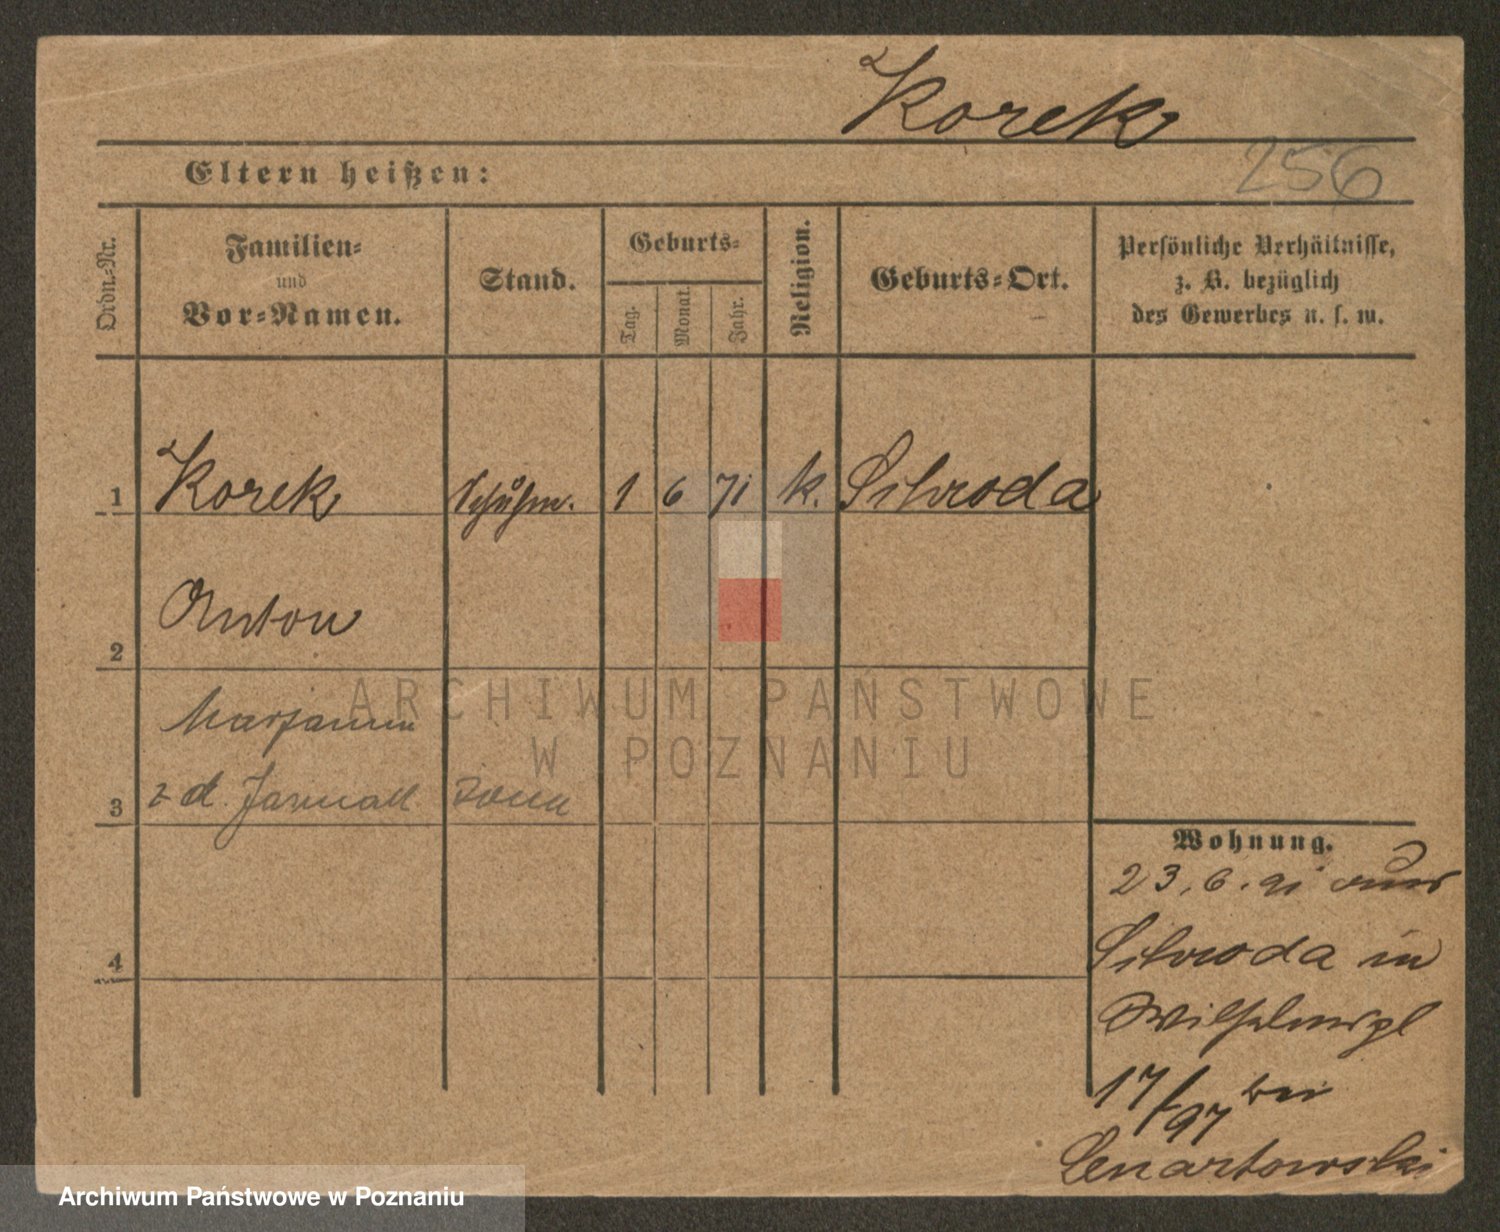 Korek
256
Eltern heißen:
Ordn.-Nr.
Familien-
und
Vor-Namen.
Stand.
Geburts-
Tag.
Monat.
Jahr.
Religion.
Geburts-Ort.
Persönliche Verhältnisse,
z. B. bezüglich
des Gewerbes u. s. w.
1 Korek Schuhm. 1 6 71 k. Schroda
Anton
2
ARCHIWUM PAŃSTWOWE
W POZNANIU
3
Wohnung.
23. 6. 91 aus
4
Schroda in
Wilhelmspl
17/97 bei
Lenartowski
Archiwum Państwowe w Poznaniu